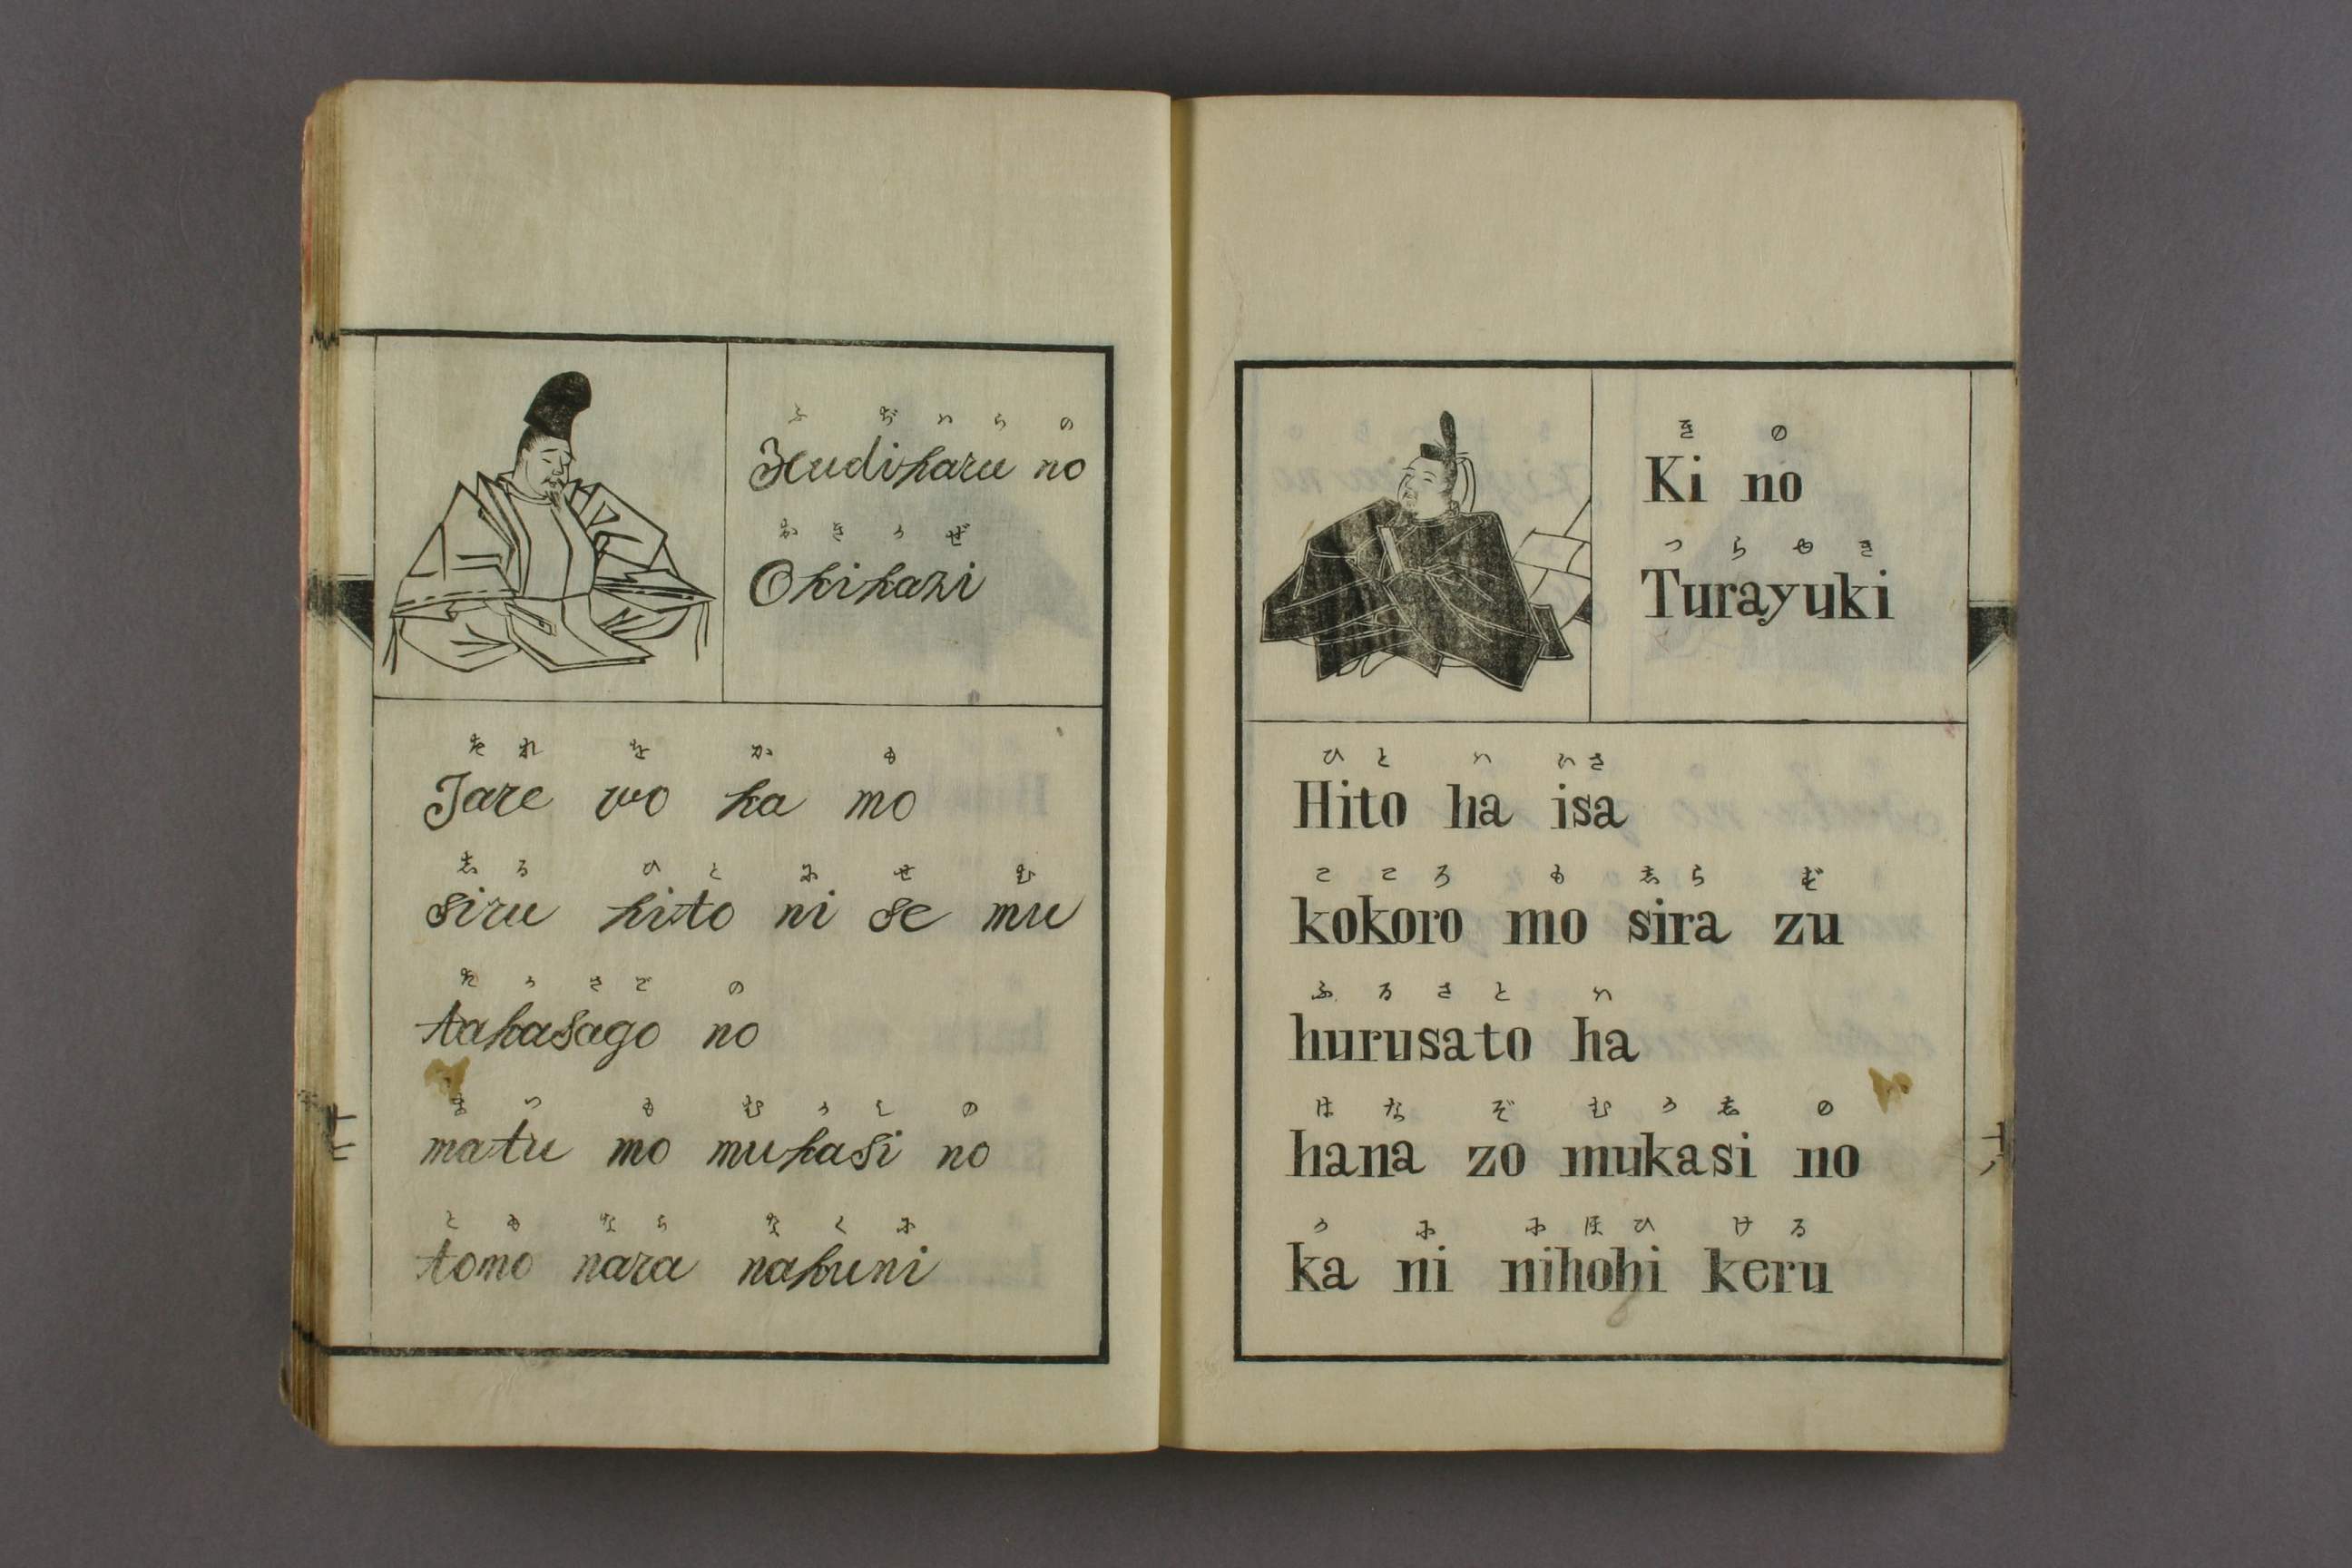 ふぢハらの
Hudiharu no
おきかぜ
Okikazi
たれ を か も
Tare wo ka mo
しる ひと に せ む
siru hito ni se mu
たかさご の
takasago no
まつ も むかし の
matu mo mukasi no
とも なら なくに
tomo nara nakuni
き の
Ki no
つらゆき
Turayuki
ひと ハ いさ
Hito ha isa
こころ も しら ず
kokoro mo sira zu
ふるさと ハ
hurusato ha
はな ぞ むかし の
hana zo mukasi no
か に にほひ ける
ka ni nihohi keru